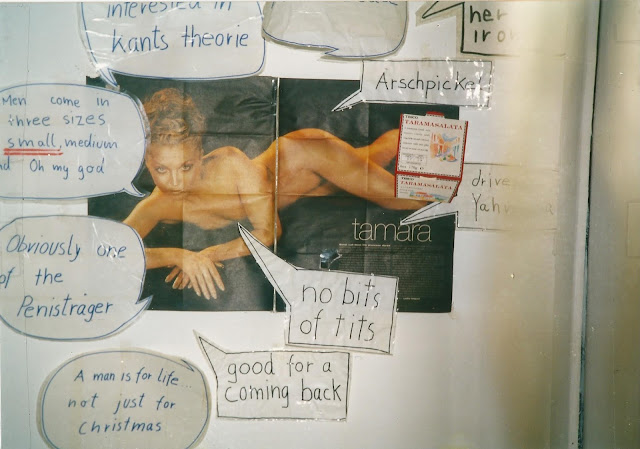 interested in
Kants theorie
her
Arschpickel
Men come in
three sizes
small, medium
Oh my god
TARAMASALATA
TARAMASALATA
drive
tamara
Obviously one
of the
Penisträger
no bits
of tits
good for a
coming back
A man is for life...
not just for
christmas